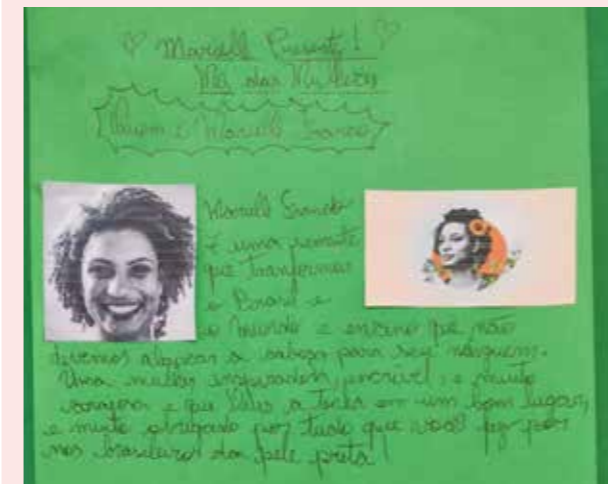 Marielle Presente!
Mês das Mulheres
Quem é Marielle Franco
Marielle Franco
é uma semente
que transformou
o Brasil e
o mundo e ensinou que não
devemos abaixar a cabeça para seu ninguém.
Uma mulher inspiradora, incrível, e muito
corajosa e que Deus a tenha em um bom lugar,
e muito obrigado por tudo que você fez por
nos brasileiros da pele preta!